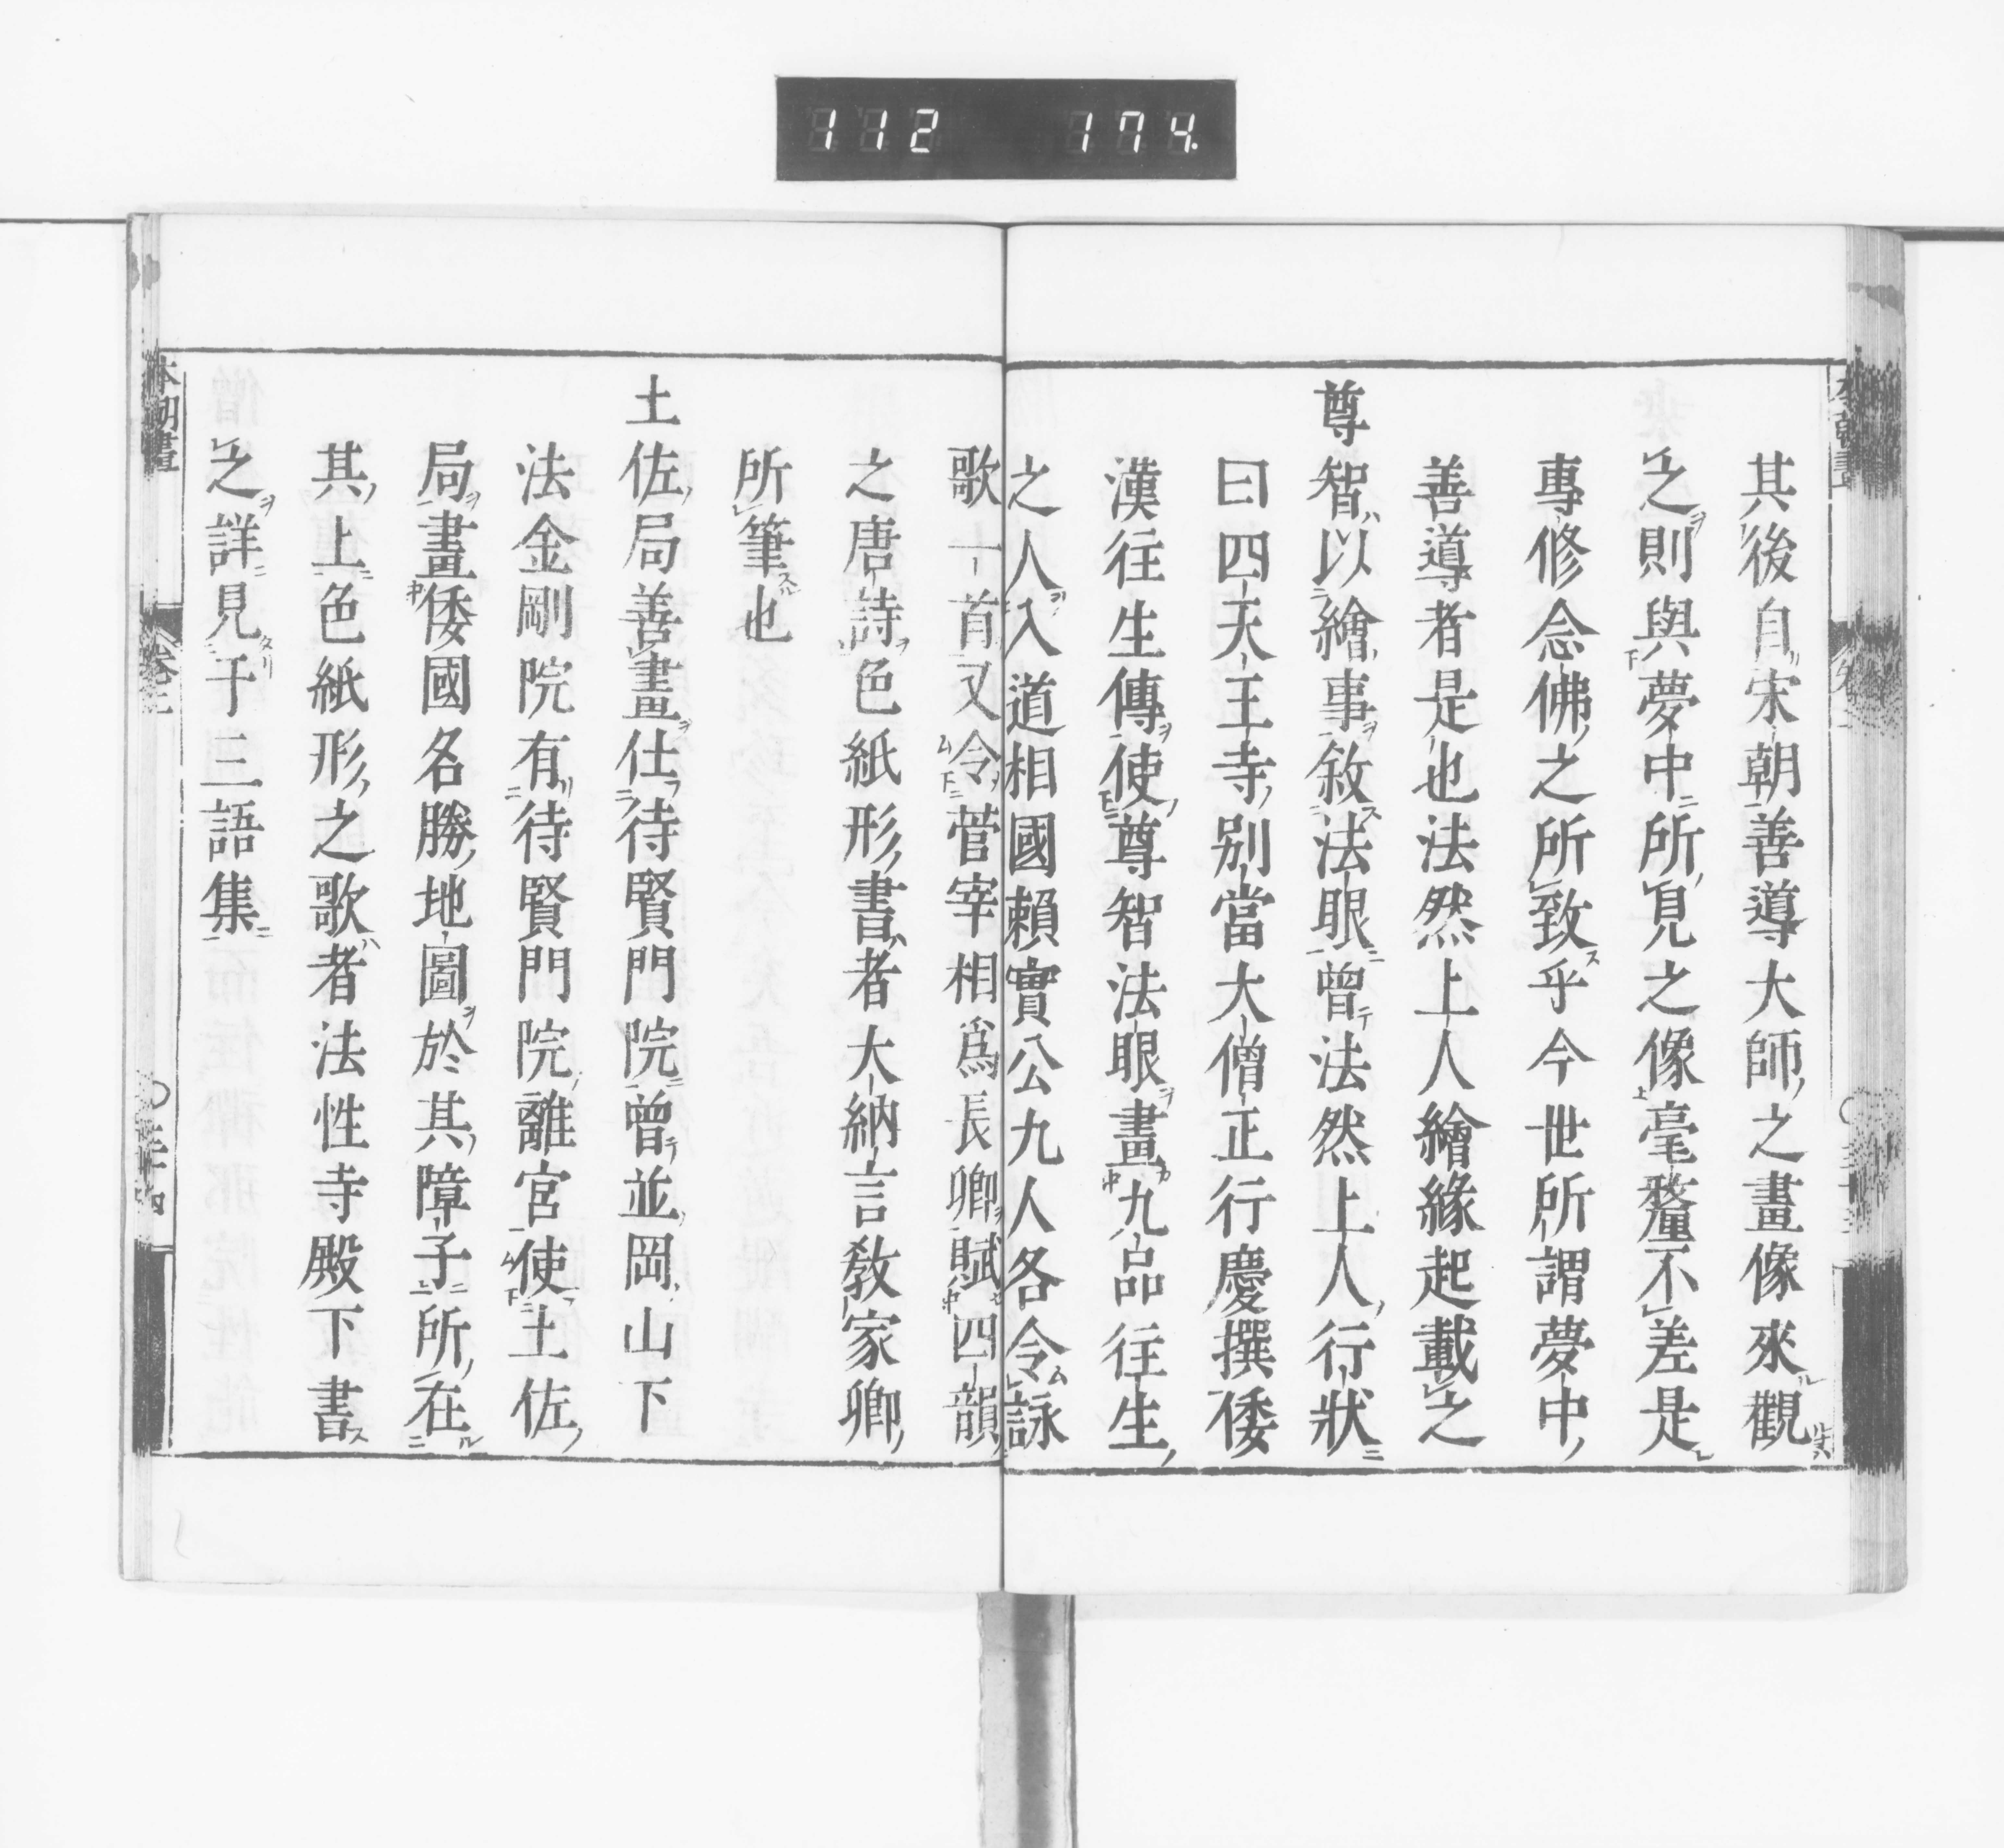 112 174.
其後自宋朝善導大師之畫像來觀
之則與夢中所見之像毫釐不差是
專修念佛之所致乎今世所謂夢中
善導者是也法然上人繪緣起載之
尊智以繪事敘法眼曾法然上人行狀
曰四天王寺別當大僧正行慶撰倭
漢往生傳使尊智法眼畫九品往生
之人入道相國賴實公九人各令詠
歌一首又令菅宰相爲長卿賦四韻
之唐詩色紙形書者大納言教家卿
所筆也
土佐局善畫仕待賢門院曾並岡山下
法金剛院有待賢門院離宮使土佐
局畫倭國名勝地圖於其障子所在
其上色紙形之歌者法性寺殿下書
之詳見于三語集
本朝畫 卷二